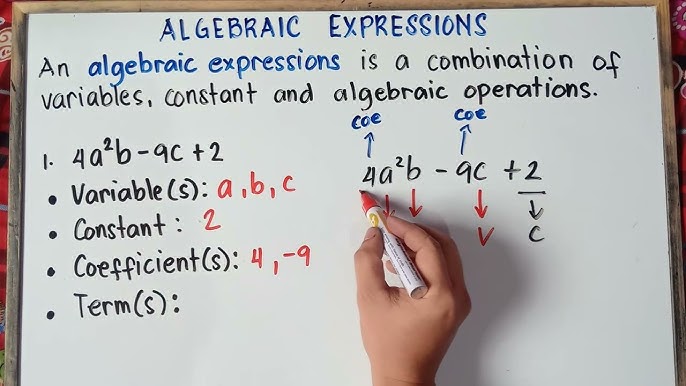 ALGEBRAIC EXPRESSIONS
An algebraic expressions is a combination of
variables, constant and algebraic operations.
1. 4a²b - 9c + 2
• Variable(s): a, b, c
• Constant : 2
• Coefficient(s): 4, -9
• Term(s):
coe coe
4a²b - 9c + 2
V C